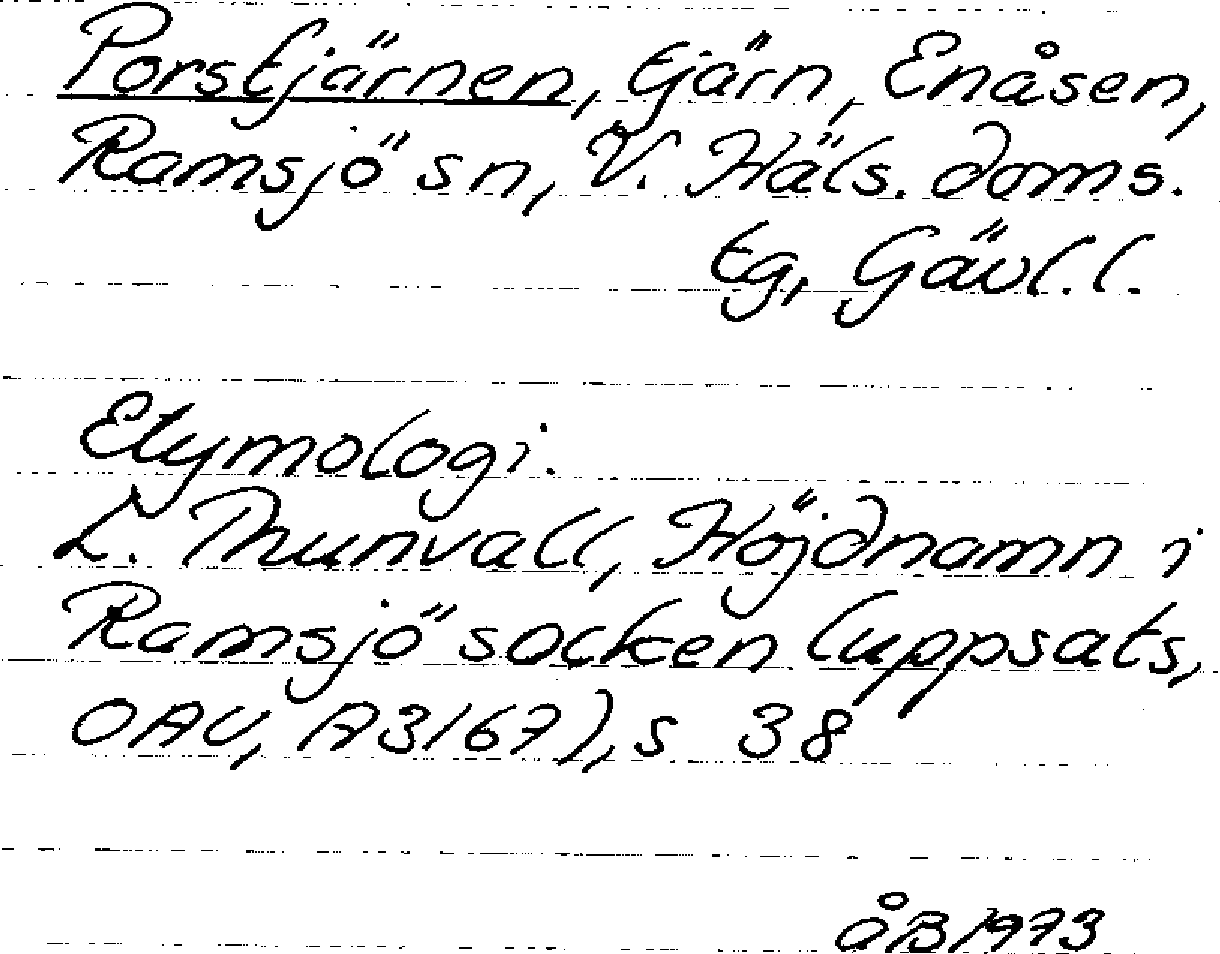 Porstjärnen, tjärn, Enåsen,
Ramsjö sn, V. Häls. doms.
tg, Gävl. l.
Etymologi.
L. Thunvall, Höjdnamn i
Ramsjö socken (uppsats,
OAU, A3167), s 38
ÅB 1973